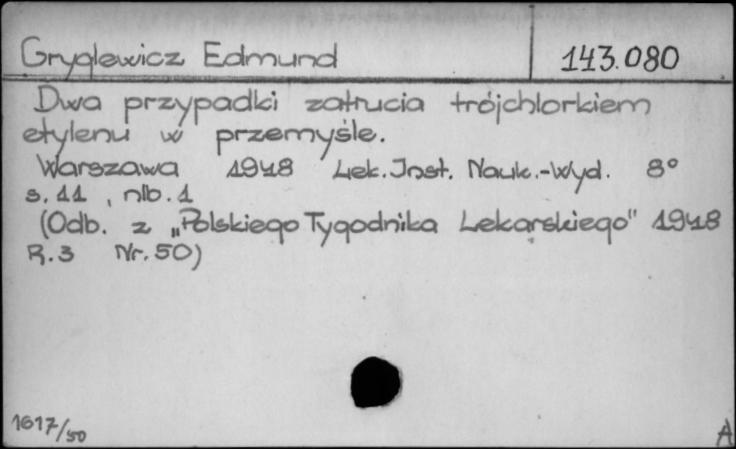 Gryglewicz Edmund 143.080
Dwa przypadki zatrucia trójchlorkiem
etylenu w przemyśle.
Warszawa 1948 Lek. Inst. Nauk.-Wyd. 8°
s. 11, nlb. 1
(Odb. z „Polskiego Tygodnika Lekarskiego" 1948
R. 3 Nr. 50)
1617/50 A